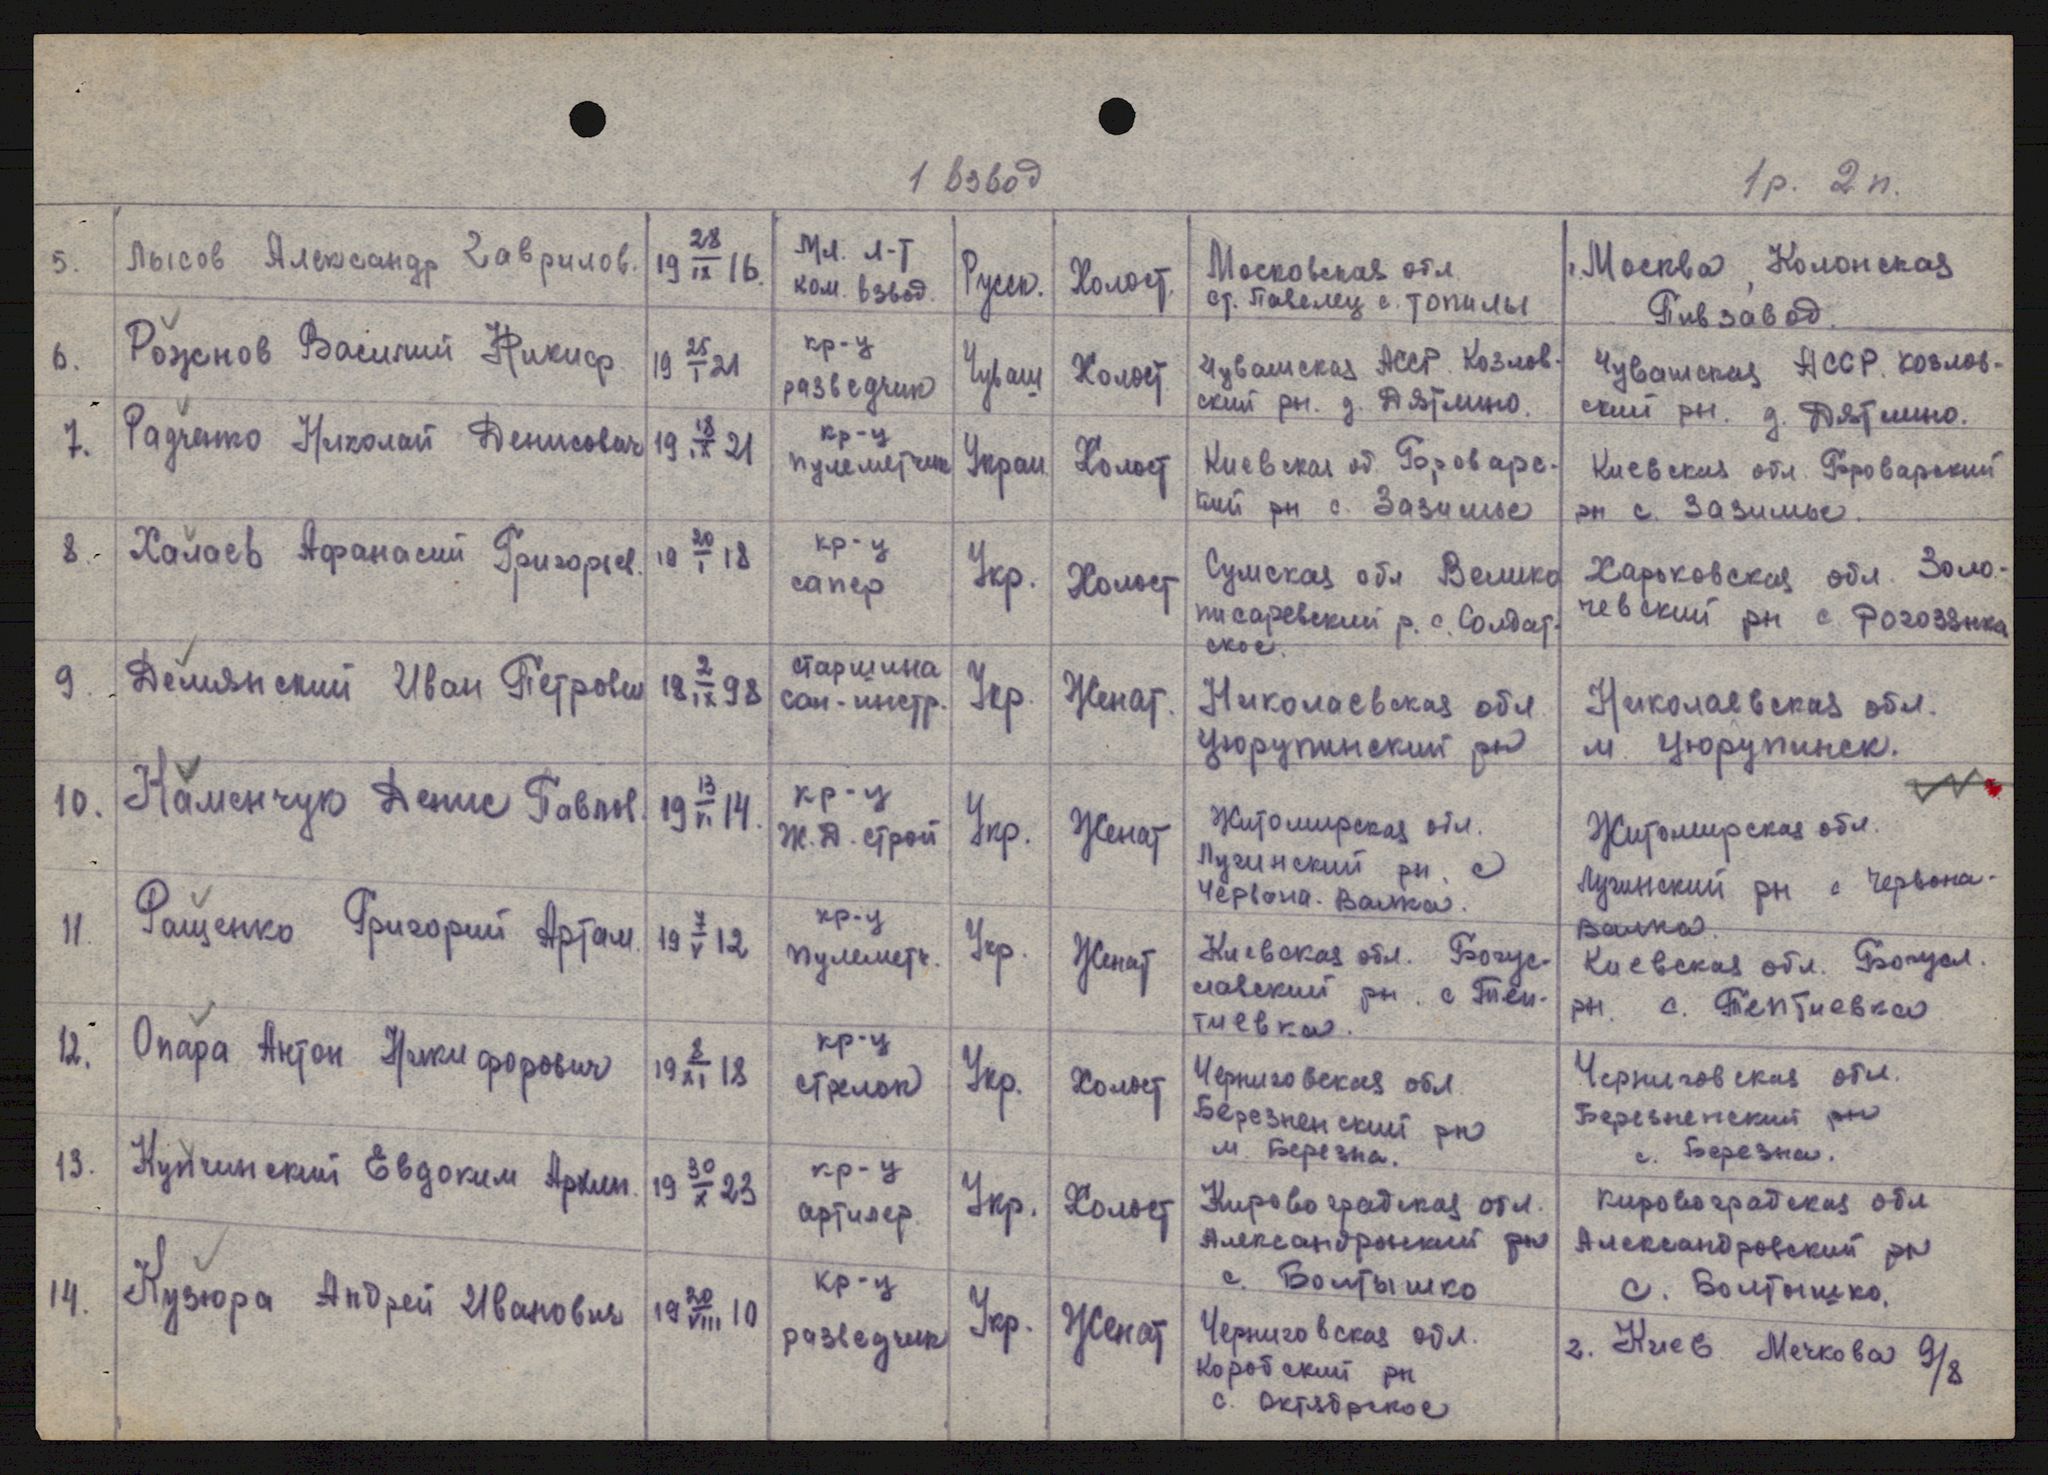 1 взвод
1 р. 2 п.
5. Лысов Александр Гаврилов. 19 28/IX 16. Мл. л-т ком. взвод. Русск. Холост. Московская обл. ст. Павелец с. Топилы Москва, Колонская Пивзавод.
6. Рожнов Василий Никиф. 19 25/I 21 кр-ц разведчик Чуваш Холост Чувашская АССР. Козлов-
ский рн. д. Дятлино. Чувашская АССР. Козлов-
ский рн. д. Дятлино.
7. Радченко Николай Денисович 19 18/IX 21 кр-ц пулеметчик Украи Холост Киевская об. Броварс-
кий рн с. Зазимье Киевская обл. Броварский
рн с. Зазимье.
8. Халаев Афанасий Григорьев. 19 20/I 18 кр-ц сапер Укр. Холост Сумская обл Велико
писаревский р. с. Солдат-
ское. Харьковская обл. Золо-
чевский рн с Рогозянка
9. Демянский Иван Петрович 18 2/IX 98 старшина сан-инстр. Укр. Женат. Николаевская обл
Цюрупинский рн Николаевская обл.
м. Цюрупинск.
10. Каменчук Денис Павлов. 19 13/VI 14. кр-ц Ж.Д. строй Укр. Женат Житомирская обл.
Лугинский рн. с
Червона. Валка. Житомирская обл.
Лугинский рн с Червона-
Валка.
11. Ращенко Григорий Артам. 19 7/V 12 кр-ц пулеметч. Укр. Женат Киевская обл. Богус-
лавский рн. с Теп-
тиевка. Киевская обл. Богусл.
рн. с. Тептиевка
12. Опара Антон Никифорович 19 8/XI 18 кр-ц стрелок Укр. Холост Черниговская обл
Березненский рн
м. Березна. Черниговская обл.
Березненский рн
с. Березна.
13. Купчинский Евдоким Архип. 19 30/X 23 кр-ц артилер. Укр. Холост Кировоградская обл.
Александронский рн
с. Болтышко Кировоградская обл
Александровский рн
с. Болтышко.
14. Кузюра Андрей Иванович 19 20/VIII 10 кр-ц разведчик Укр. Женат Черниговская обл.
Коробский рн
с. Октябрское г. Киев Мечкова 9/8